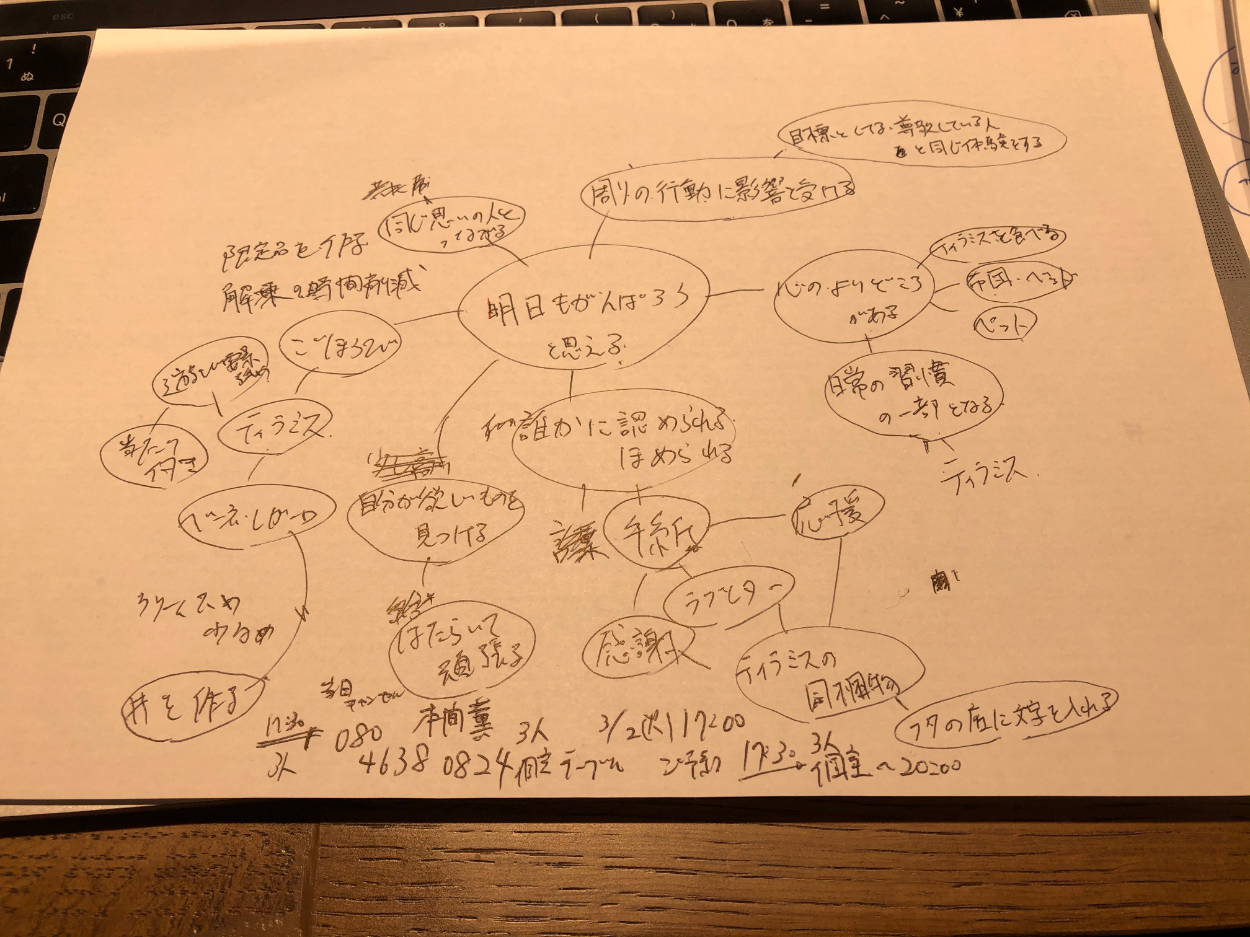 目標としてる・尊敬している人
と同じ体験をする
周りの行動に影響を受ける
同じ思いの人と
つながる
限定品を作る
解凍の時間削減
明日もがんばろう
と思える
心のよりどころ
がある
ティラミスを食べる
布団・ベッド
ペット
ごほうび
日常の習慣
の一部となる
ティラミス
ティラミス
当たり
付き
誰かに認められる
ほめられる
自分が欲しいものを
見つける
言葉
手紙
応援
ラブレター
感謝状
はたらいて
頑張る
ティラミスの
同梱物
フタの底に文字を入れる
クリーム太め
少なめ
丼を作る
当日
キャンセル
17:30
3人
080
4638 0824
本間薫
3人
3/2(火)17:00
個室 テーブル
ご予約
17:30
3人
個室
~20:00